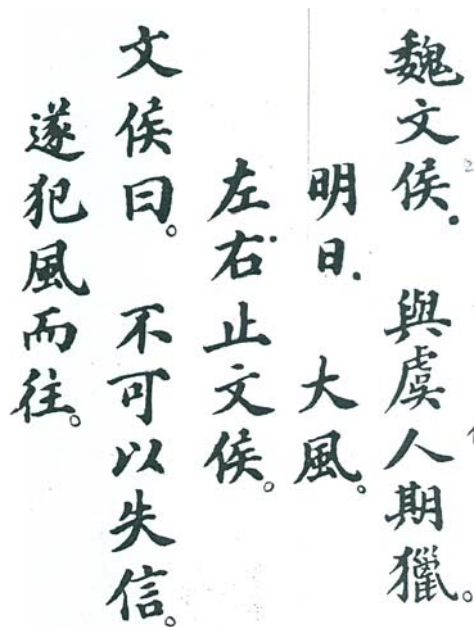 魏文侯. 與虞人期獵。
明日. 大風。
左右止文侯。
文侯曰。 不可以失信。
遂犯風而往。